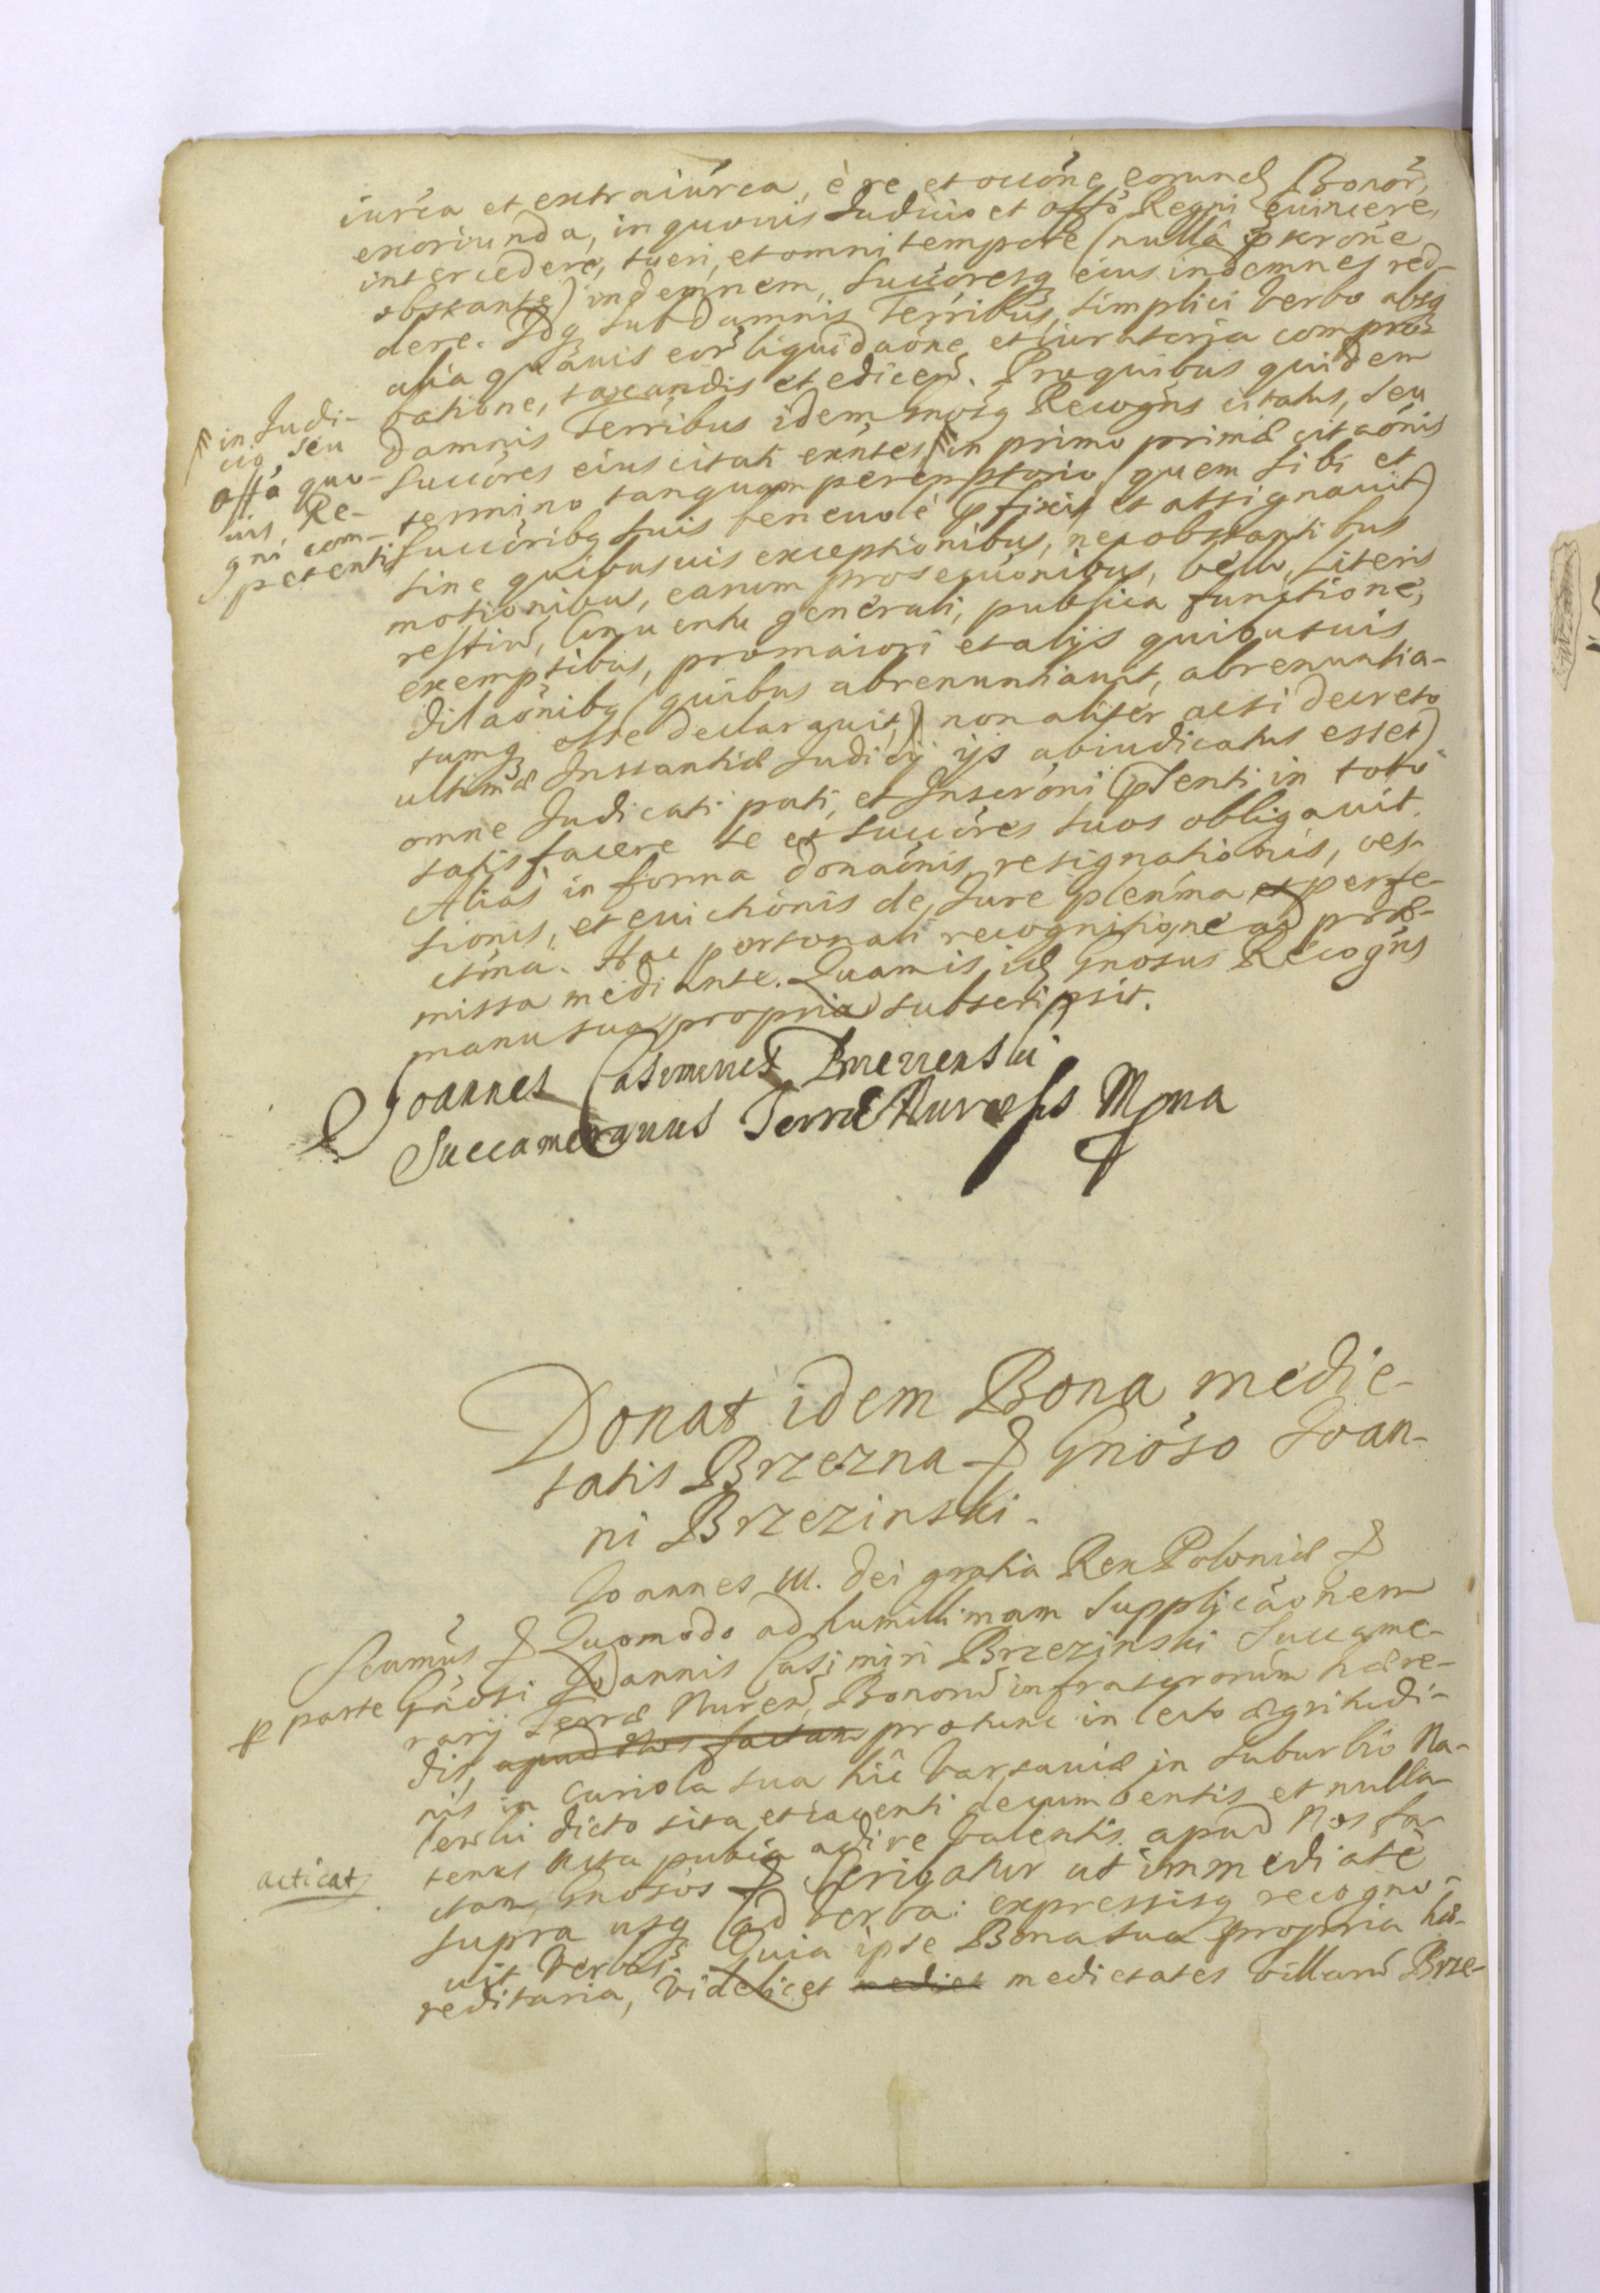 iurỉca et extraiurỉca, è re et occỏne eorund Bonor̉,
exoriunda, in quovis Judicio et offo Regni evincere,
intercedere, tueri, et omni tempore (nullâ pscrỏne
obstante) indemnem, Succoresq eius indemnes red-
dere. Idq sub damnis Terribus, simplici verbo absq
alia quavis eor̉ liquidaỏne, et iuratoria compro-
batione, taxandis et edicen. Pro quibus quidem
damnis Terribus idem Gnosq Recogns citatus, seu
Succores eius citati exntes in primo primæ citaỏnis
termino tanquam peremptorio (quem sibi et
Succoribq suis benevole pfixit et assignavit)
sine quibusvis exceptionibus, nec obstantibus
motionibus, earum prosecuỏnibus, bello, literis
restiv, Conventu generali, publica functione,
exemptibus, pro maiori et alijs quibusvis
dilaỏnibq (quibus abrenuntiavit, abrenuntia-
tumq esse declaravit,) non aliter acsi decreto
ultimæ Instantiæ Judicij ijs abiudicatus esset)
omne Judicati pati, et Inscrỏni pnti in toto
satisfacere se et succores suos obligavit.
Alias in forma donaỏnis, resignationis, ces-
sionis, et evictionis de Jure plenma et perfe-
ctma. Hac personali recognitione ad præ-
missa mediante. Quam is id Gnosus Recogns
manu sua propria subscripsit.
in Judi-
cio seu
offo quo-
vis, Re-
gni com-
petenti
Joannes Casimirus Brzezinski
Succamerarius Terræ Nurensis Mpria
Donat idem Bona medie-
tatis Brzezna & Gnoso Joan-
ni Brzezinski.
Joannes III. Dei gratia Rex Poloniæ &
Scamus & Quomodo ad humillimam Supplicaỏnem
p parte Gnosi Joannis Casimiri Brzezinski Succame-
rarij Terræ Nuren, Bonorum infrascrorum hære-
dis, apud Nos factam pro tunc in lecto ægritudi-
nis in Curiola sua hic Varsaviæ in suburbio Na-
lewki dicto sita et iacenti decumbentis et nulla-
tenus Acta publica adire valentis. apud Nos fa-
ctam, Gnosos & Scribatur ut immediate
acticat
supra usq ad verba: expressisq recogno-
vit verbis. Quia ipse Bona sua propria hæ-
reditaria, videlicet mediet medietates villarum Brze-